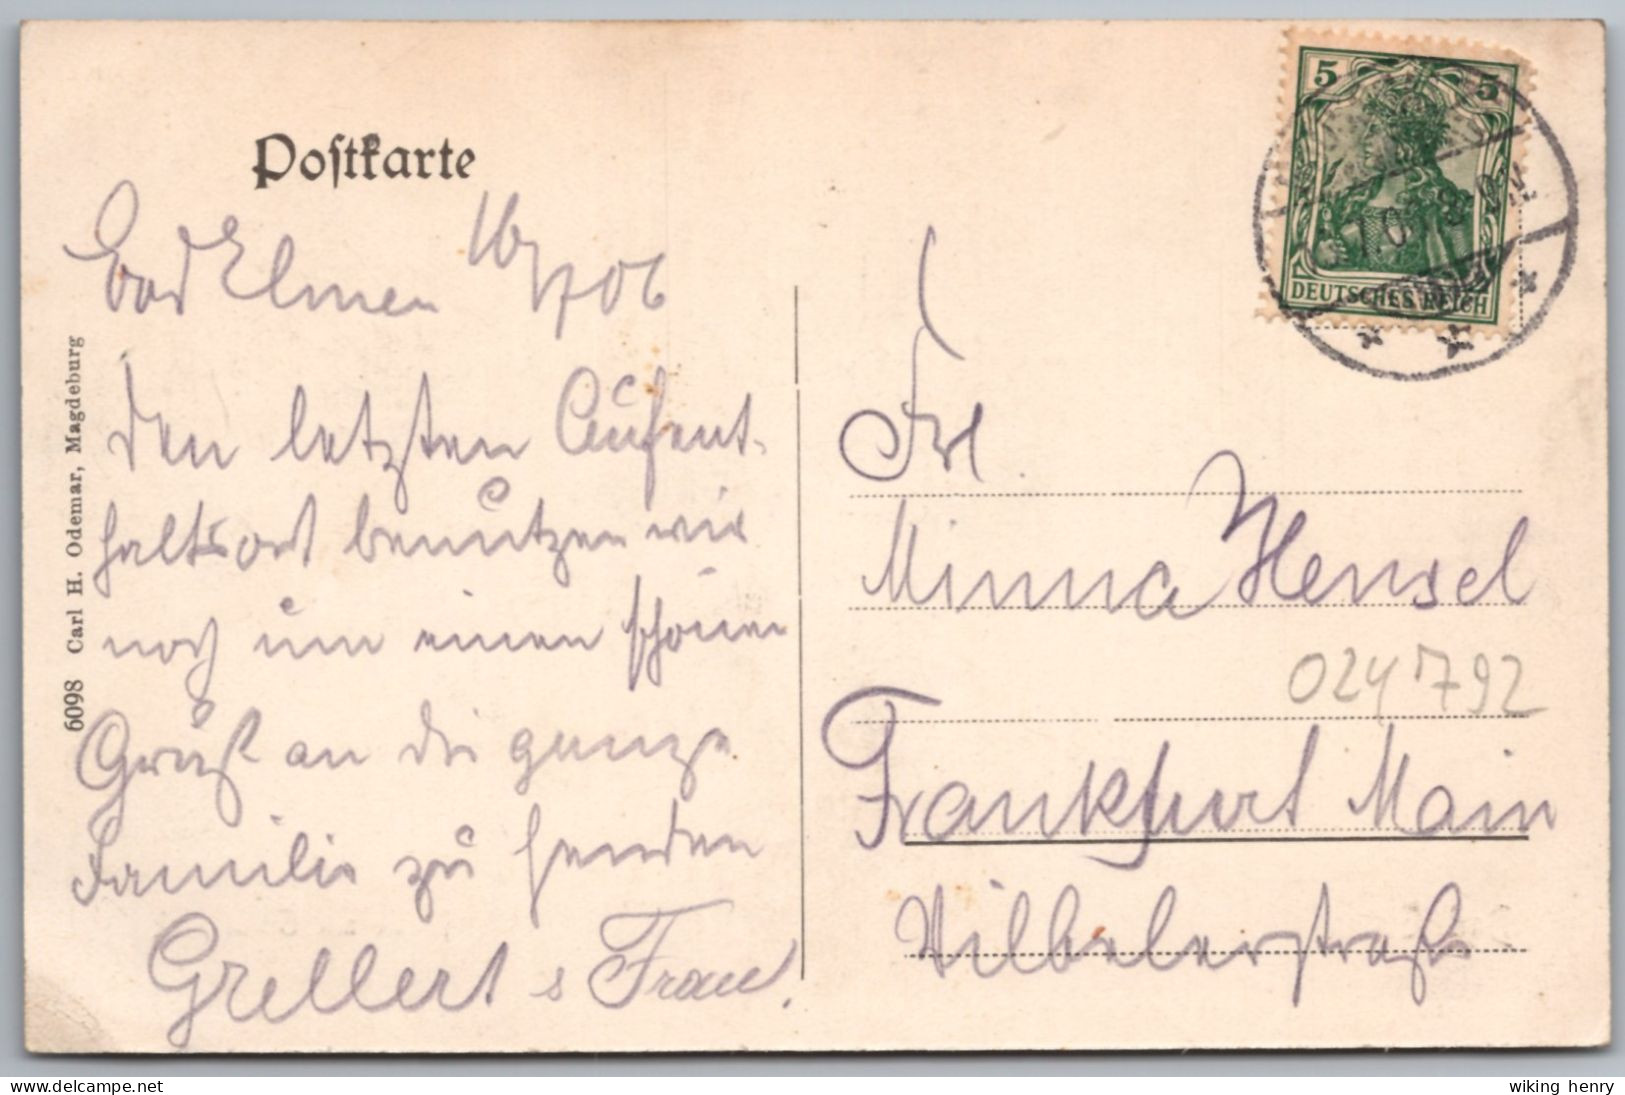 Postkarte
Bad Elmen 16/7 06
Den letzten Aufent-
haltsort benutzen wir
noch um einen schönen
Gruß an die ganze
Familie zu senden
Grellert u Frau.
6098 Carl H. Odemar, Magdeburg
5 5
DEUTSCHES REICH
Frl.
Minna Hensel
024792
Frankfurt Main
Vilbelerstraße
wiking henry